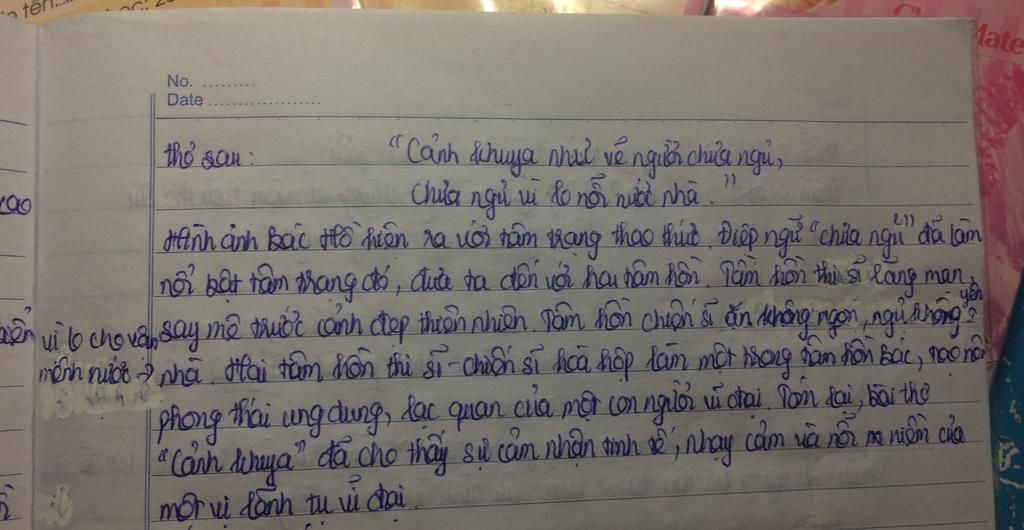 No. ..........
Date ...................
thơ sau: "Cảnh khuya như vẽ người chưa ngủ,
Chưa ngủ vì lo nỗi nước nhà."
Hình ảnh Bác Hồ hiện ra với tâm trạng thao thức. Điệp ngữ "chưa ngủ" đã làm
nổi bật tâm trạng đó, đưa ta đến với hai tâm hồn. Tâm hồn thi sĩ lãng mạn,
say mê trước cảnh đẹp thiên nhiên. Tâm hồn chiến sĩ ăn không ngon, ngủ không yên
vì lo cho vận
mệnh nước → nhà. Hai tâm hồn thi sĩ - chiến sĩ hoà hợp làm một trong tâm hồn Bác, tạo nên
phong thái ung dung, lạc quan của một con người vĩ đại. Tóm lại, bài thơ
"Cảnh khuya" đã cho thấy sự cảm nhận tinh tế, nhạy cảm và nỗi niềm của
một vị lãnh tụ vĩ đại.